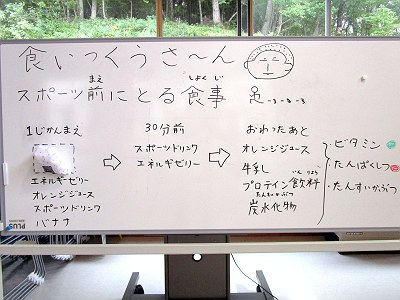 食いっくうさ〜ん
スポーツ前にとる食事
まえ
しょくじ
1じかんまえ
エネルギゼリー
オレンジジュース
スポーツドリンク
バナナ
30分前
スポーツドリンク
エネルギーゼリー
おわったあと
オレンジジュース
牛乳
プロテイン飲料
いんりょう
たんすいかぶつ
炭水化物
・ビタミン
・たんぱくしつ
・たんすいかぶつ
PLUS